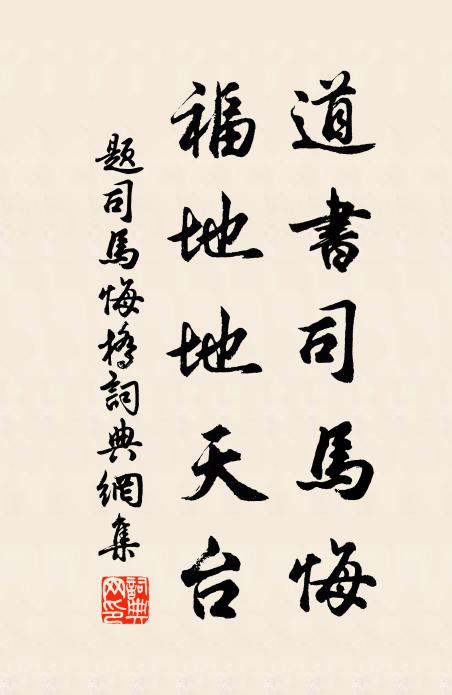 道書司馬悔
福地地天台
題司馬悔橋詞典網集
詞典网印